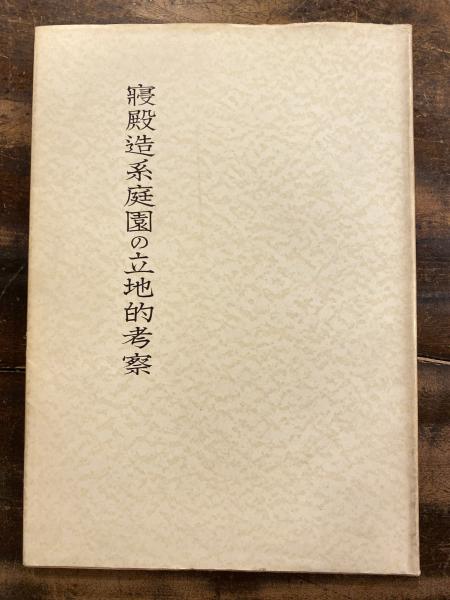 寝殿造系庭園の立地的考察